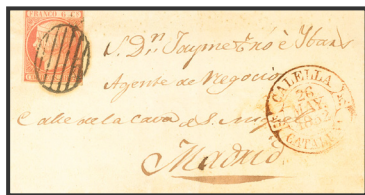 FRANCO 6 Cs
S. Dn. Jayme
Agente de Negocios
Calle de la Cava de S. Miguel
Madrid
CALELLA
26
MAY
1852
CATALUÑA